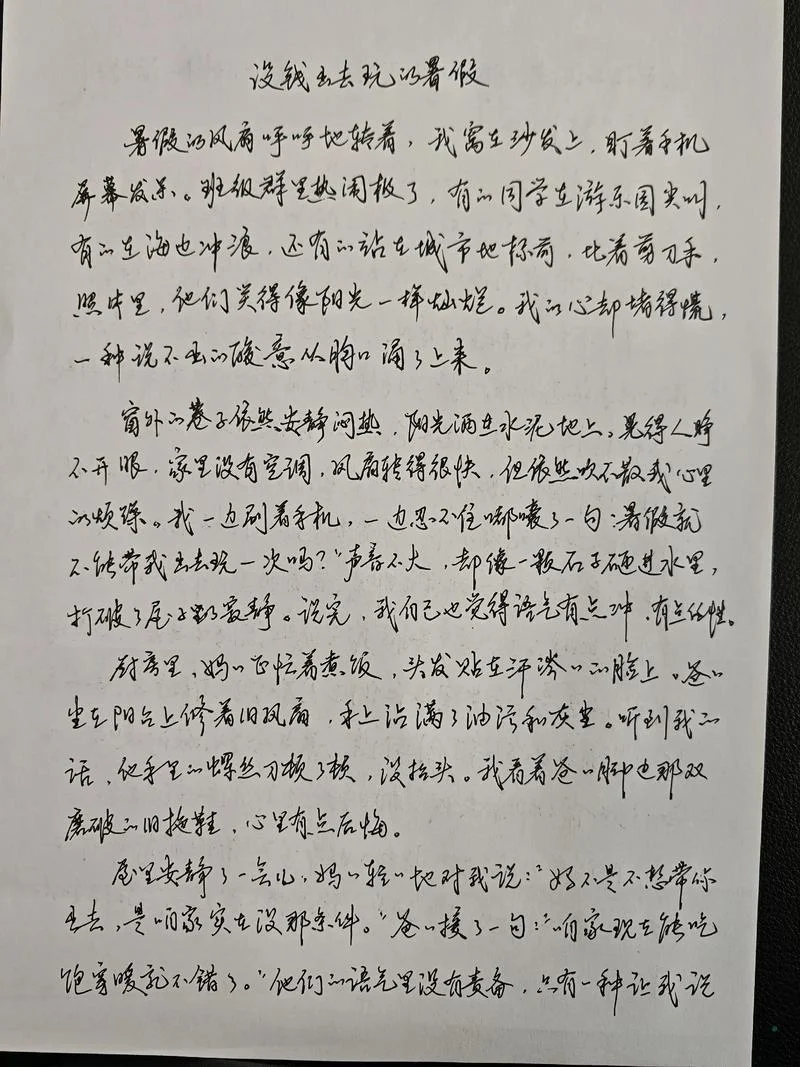 没钱出去玩的暑假
暑假的风扇呼呼地转着，我窝在沙发上，盯着手机
屏幕发呆。班级群里热闹极了，有的同学在游乐园尖叫，
有的在海边冲浪，还有的站在城市地标前，比着剪刀手，
照片里，他们笑得像阳光一样灿烂。我的心却堵得慌，
一种说不出的酸意从胸口涌了上来。
窗外的巷子依然安静闷热，阳光洒在水泥地上，晃得人睁
不开眼，家里没有空调，风扇转得很快，但依然吹不散我心里
的烦躁。我一边刷着手机，一边忍不住嘟囔了一句：暑假就
不能带我出去玩一次吗？”声音不大，却像一颗石子砸进水里，
打破了屋子里的寂静。说完，我自己也觉得语气有点冲，有点任性。
厨房里，妈〃正忙着煮饭，头发贴在汗涔〃的脸上。爸〃
坐在阳台上修着旧风扇，手上沾满了油污和灰尘。听到我的
话，他手里的螺丝刀顿了顿，没抬头。我看着爸〃脚边那双
磨破的旧拖鞋，心里有点后悔。
屋里安静了一会儿，妈〃轻〃地对我说：“妈不是不想带你
出去，是咱家实在没那条件。”爸〃接了一句：“咱家现在能吃
饱穿暖就不错了。”他们的语气里没有责备，只有一种让我说